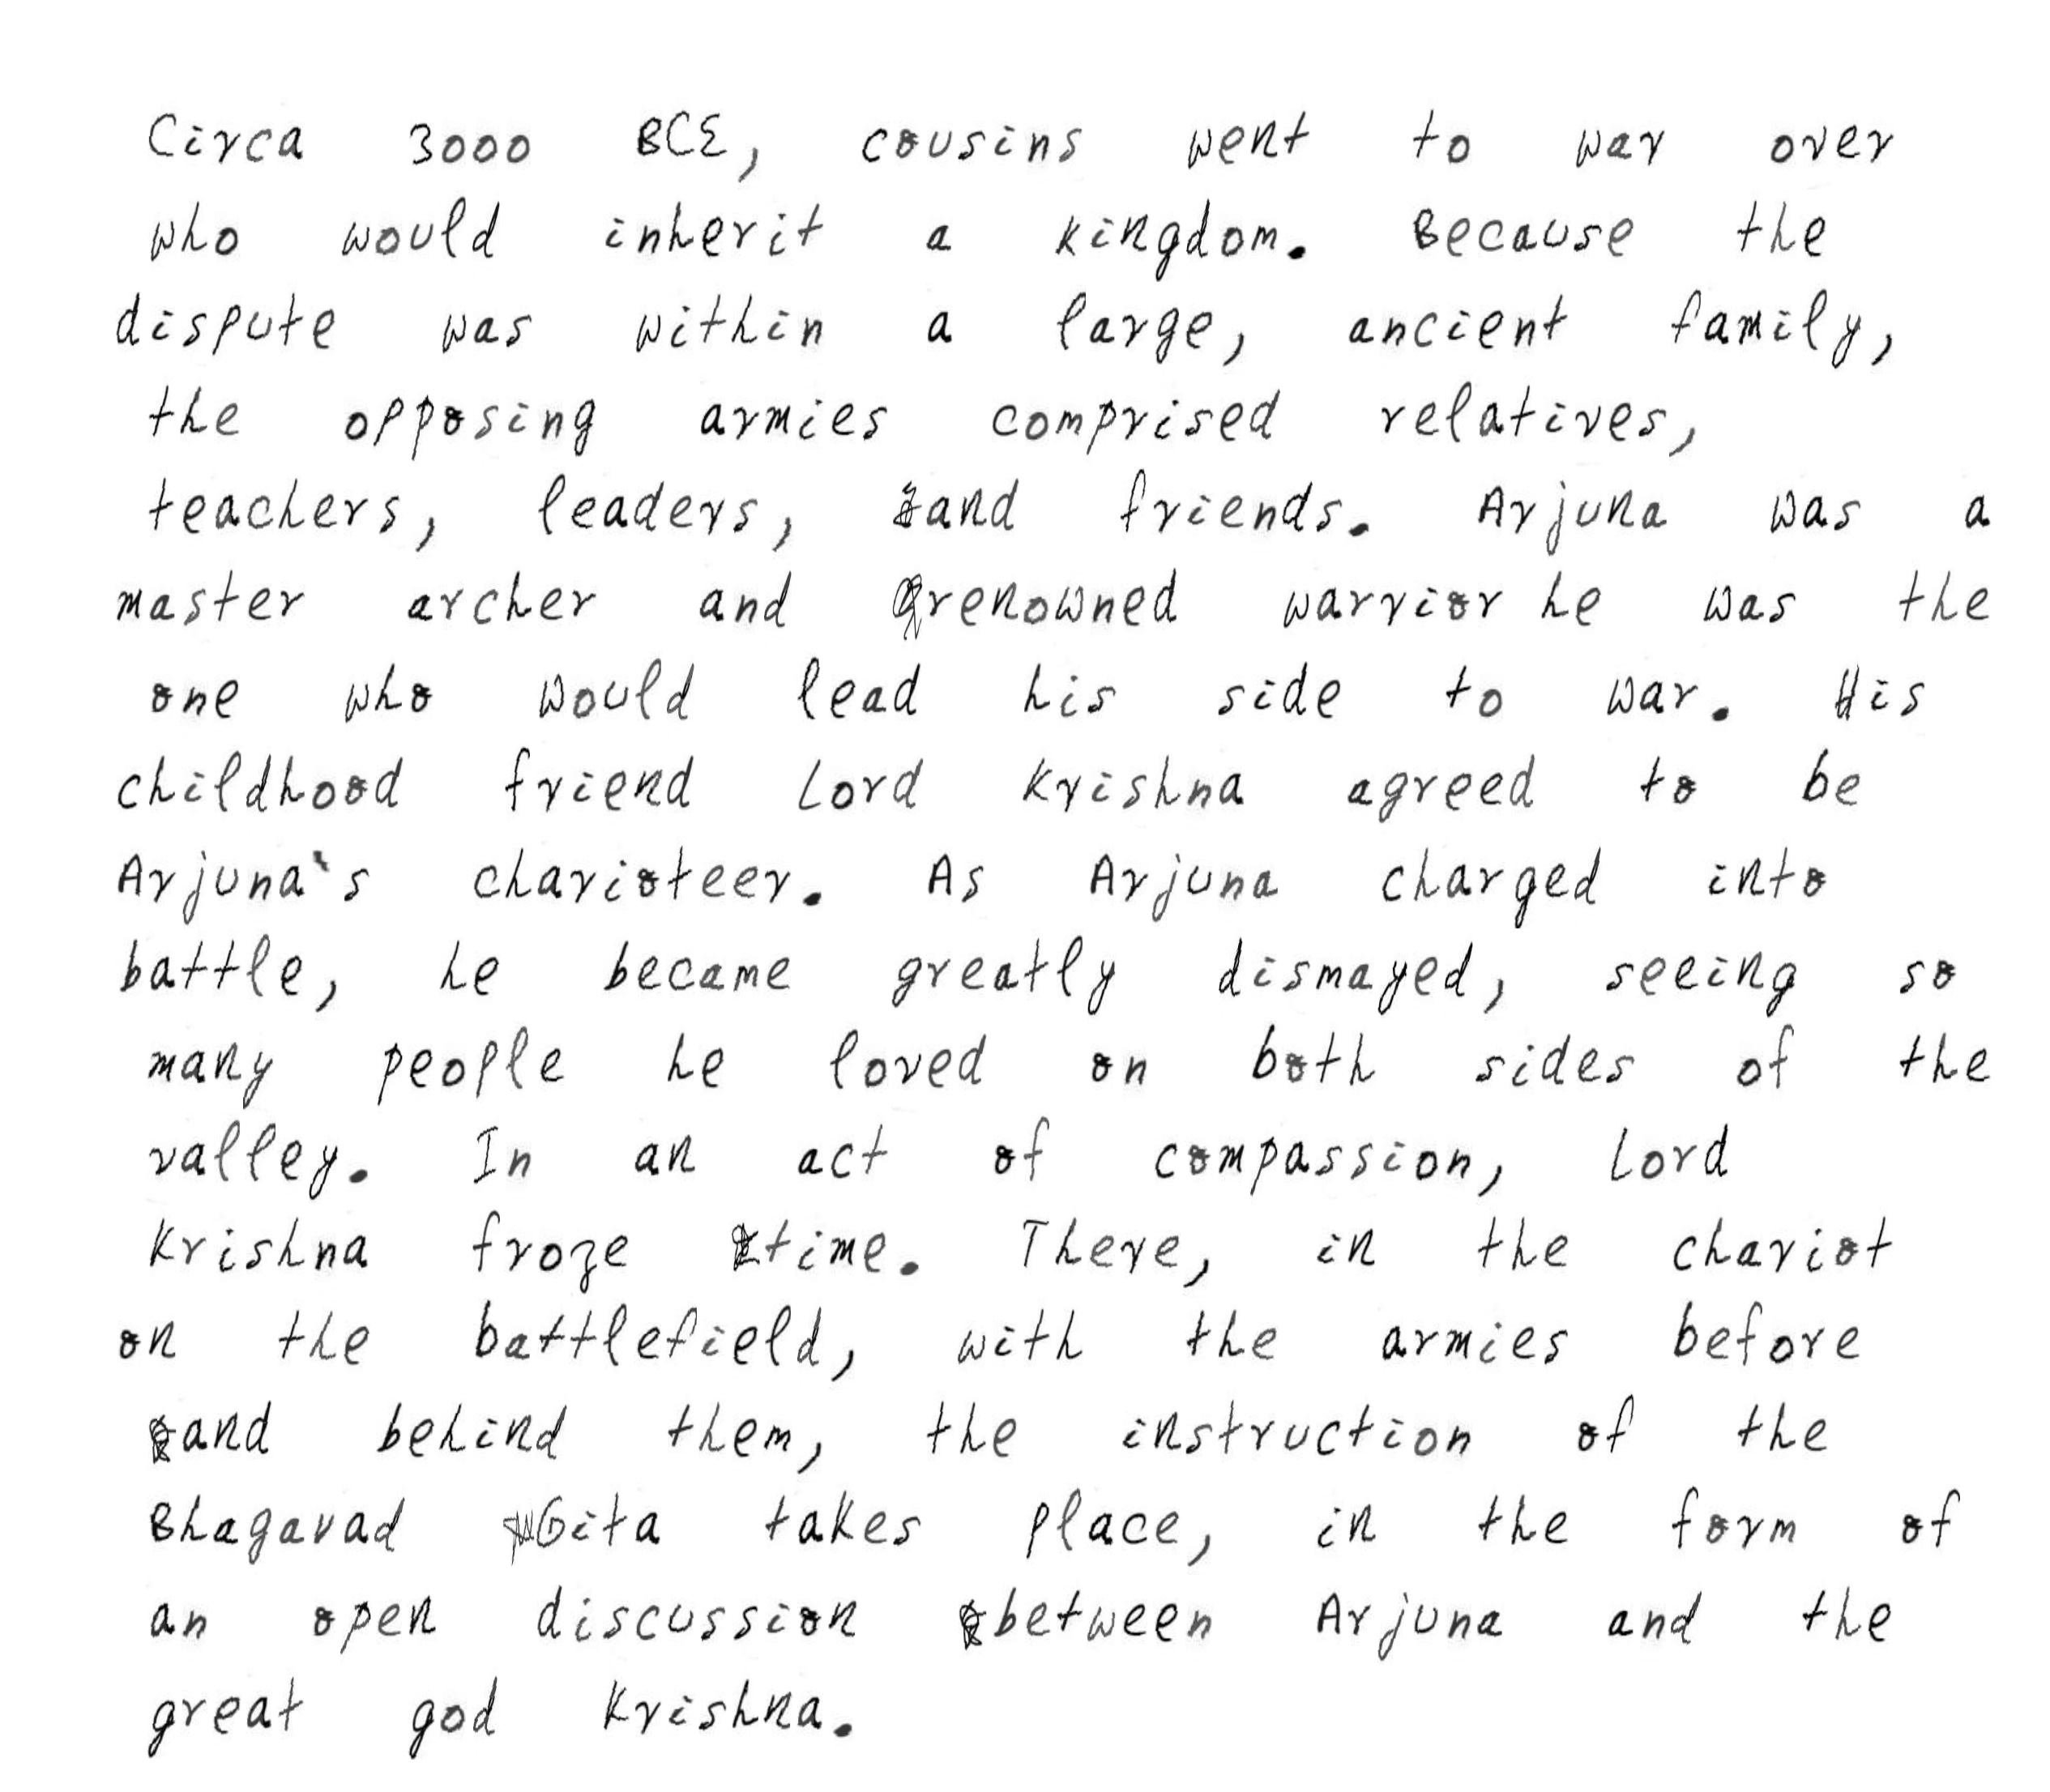 Circa 3000 BCE, cousins went to war over
who would inherit a kingdom. Because the
dispute was within a large, ancient family,
the opposing armies comprised relatives,
teachers, leaders, and friends. Arjuna was a
master archer and renowned warrior he was the
one who would lead his side to war. His
childhood friend Lord Krishna agreed to be
Arjuna's charioteer. As Arjuna charged into
battle, he became greatly dismayed, seeing so
many people he loved on both sides of the
valley. In an act of compassion, Lord
Krishna froze time. There, in the chariot
on the battlefield, with the armies before
and behind them, the instruction of the
Bhagavad Gita takes place, in the form of
an open discussion between Arjuna and the
great god Krishna.